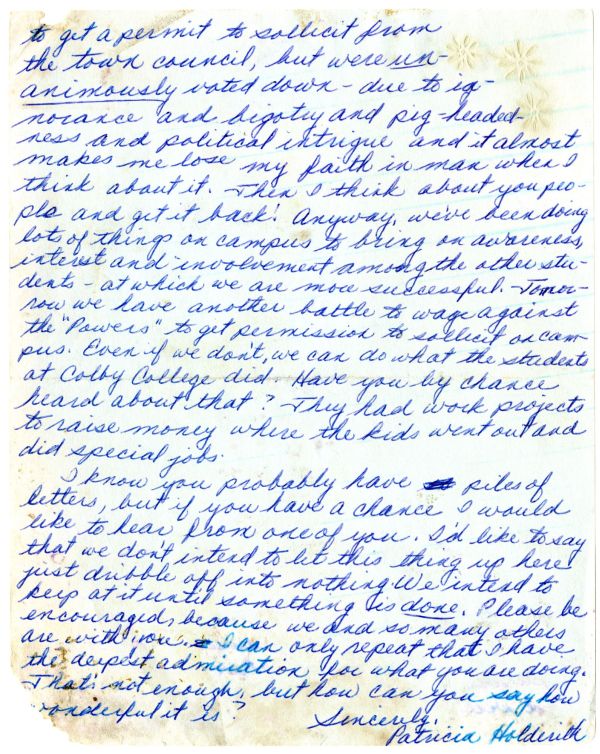 to get a permit to sollicit from
the town council, but were un-
animously voted down - due to ig-
norance and bigotry and pig-headed-
ness and political intrigue and it almost
makes me lose my faith in man when I
think about it. Then I think about you peo-
ple and get it back! Anyway, we've been doing
lots of things on campus to bring on awareness,
interest and involvement among the other stu-
dents - at which we are more successful. Tomor-
row we have another battle to wage against
the "Powers" to get permission to sollicit on cam-
pus. Even if we don't, we can do what the students
at Colby College did. Have you by chance
heard about that? They had work projects
to raise money where the kids went out and
did special jobs.
I know you probably have piles of
letters, but if you have a chance I would
like to hear from one of you. I'd like to say
that we don't intend to let this thing up here
just dribble off into nothing. We intend to
keep at it until something is done. Please be
encouraged, because we and so many others
are with you. I can only repeat that I have
the deepest admiration for what you are doing.
That's not enough, but how can you say how
wonderful it is?
Sincerely,
Patricia